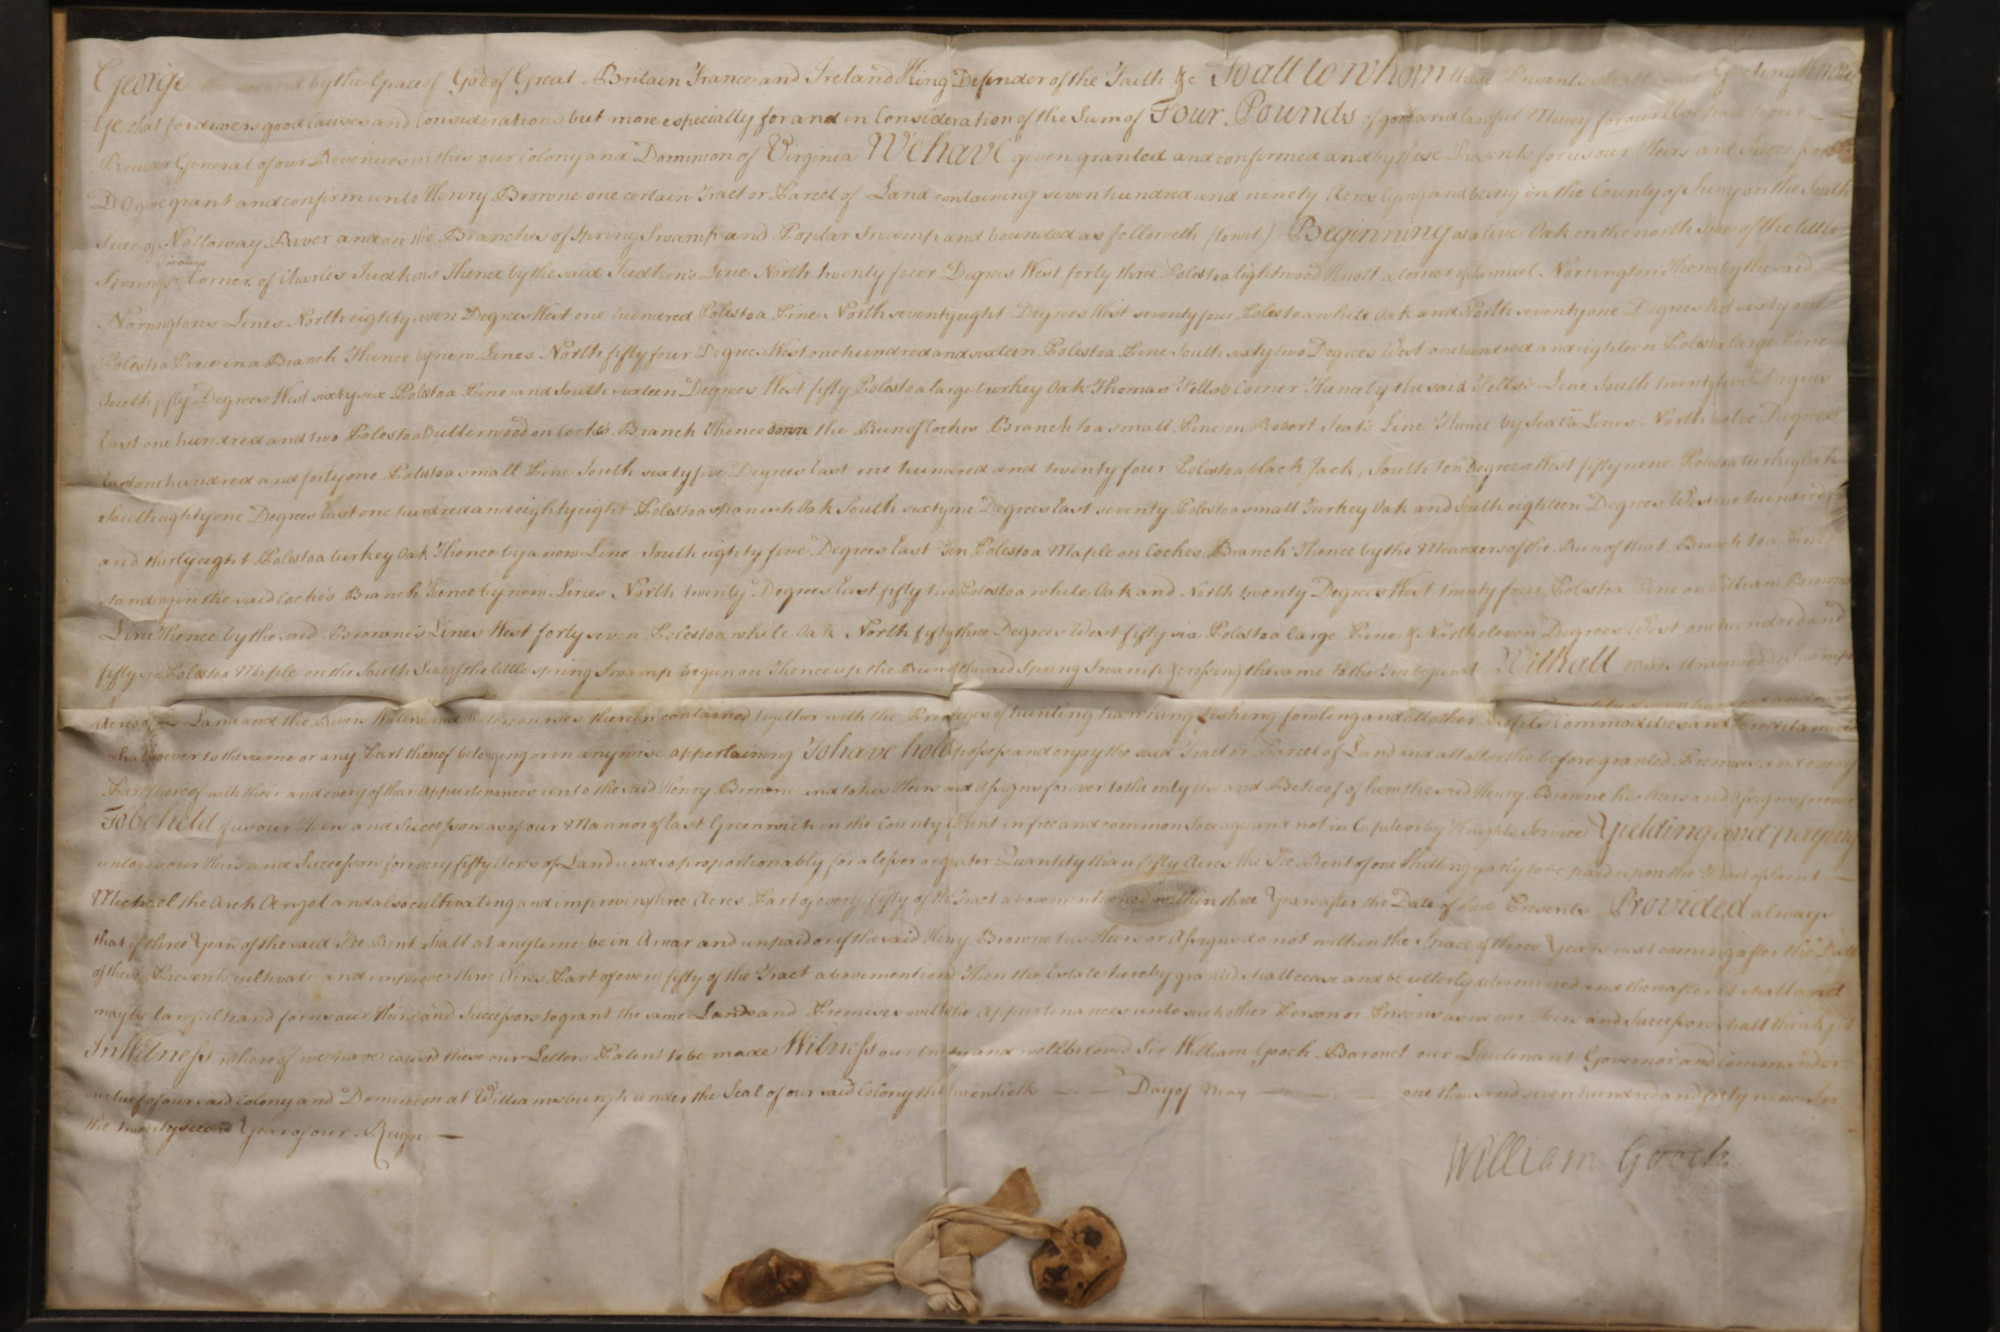 George the second by the Grace of God of Great Britain France and Ireland King Defender of the Faith &c To all to whom these Presents shall come Greeting know
Ye that for divers good Causes and Considerations but more especially for and in Consideration of the Sum of Four Pounds of good and lawful Money for our Use paid to our
Receiver General of our Revenues in this our Colony and Dominion of Virginia We have given granted and confirmed and by these Presents for us our Heirs and Successors
Do give grant and confirm unto Henry Browne one certain Tract or Parcel of Land containing seven hundred and ninety Acres lying and being in the County of Surry on the South
Side of Nottoway River and on the Branches of Spring Swamp and Poplar Swamp and bounded as followeth (to wit) Beginning at a live Oak on the north Side of the little
Spring Swamp Corner of Charles Judkins Thence by the said Judkin's Line North twenty four Degrees West forty three Poles to a lightwood Knott a corner of Samuel Norrington Thence by the said
Norringtons Lines North eighty seven Degrees West one hundred Poles to a Pine North seventy eight Degrees West seventy four Poles to a white Oak and North seventy one Degrees West sixty one
Poles to a Pine in a Branch Thence by new Lines North fifty four Degrees West one hundred and sixteen Poles to a Pine South sixty two Degrees West one hundred and eighteen Poles to a large Pine
South fifty Degrees West sixty six Poles to a Pine and South sixteen Degrees West fifty Poles to a large turkey Oak Thomas Wells's Corner Thence by the said Wells's Line South twenty five Degrees
East one hundred and two Poles to a Butterwood on Cocke's Branch Thence down the Run of Cockes Branch to a small Pine in Robert Seat's Line Thence by Seat's Lines North twelve Degrees
East one hundred and forty one Poles to a small Pine South sixty five Degrees East one hundred and twenty four Poles to a black Jack, South ten Degrees West fifty nine Poles to a turkey Oak
South eighty one Degrees East one hundred and eighty eight Poles to a spanish Oak South sixty one Degrees East seventy Poles to a small Turkey Oak and South eighteen Degrees West one hundred
and thirty eight Poles to a turkey Oak Thence by a new Line South eighty five Degrees East Ten Poles to a Maple on Cockes Branch Thence by the Meanders of the Run of that Branch to a Pine
standing in the said Cocke's Branch Thence by new Lines North twenty Degrees East fifty two Poles to a white Oak and North twenty Degrees West twenty four Poles to a Pine on William Brownes
Line Thence by the said Browne's Lines West forty seven Poles to a white Oak North fifty three Degrees West fifty six Poles to a large Pine & North eleven Degrees West one hundred and
fifty six Poles to a Maple on the South Side of the little Spring Swamp begun on Thence up the Run of the said Spring Swamp & crossing the same to the Tree began at With all Woods Underwoods Swamps
Land and the Rivers Waters and Watercourses therein contained together with the Privileges of hunting hawking fishing fowling and all other Profits Commodities and Hereditaments
whatsoever to the same or any Part thereof belonging or in anywise appertaining To have hold possess and enjoy the said Tract or Parcel of Land and all other the before granted Premises and every
Part thereof with their and every of their Appurtenances unto the said Henry Browne and to his Heirs and Assigns forever to the only Use and Behoof of him the said Henry Browne his Heirs and Assigns forever
To be held of us our Heirs and Successors as of our Mannor of East Greenwich in the County of Kent in free and common Soccage and not in Capite or by Knights Service Yielding and paying
unto us our Heirs and Successors for every fifty Acres of Land and so proportionably for a lesser or greater Quantity than fifty Acres the Fee Rent of one Shilling yearly to be paid upon the Feast of Saint
Michael the Arch Angel and also cultivating and improving three Acres Part of every fifty of the Tract abovementioned within three Years after the Date of these Presents Provided always
that if three Years of the said Fee Rent shall at anytime be in Arrear and unpaid or if the said Henry Browne his Heirs or Assigns do not within the Space of three Years next coming after the Date
of these Presents cultivate and improve three Acres Part of every fifty of the Tract abovementioned Then the Estate hereby granted shall cease and be utterly determined and thereafter it shall and
may be lawful to and for us our Heirs and Successors to grant the same Lands and Premises with the Appurtenances unto such other Person or Persons as we our Heirs and Successors shall think fit
In Witness whereof we have caused these our Letters Patent to be made Witness our trusty and wellbeloved Sir William Gooch Baronet our Lieutenant Governor and Commander
in chief of our said Colony and Dominion at Williamsburgh under the Seal of our said Colony the twentieth Day of May one thousand seven hundred and forty nine In
the twenty second Year of our Reign
William Gooch